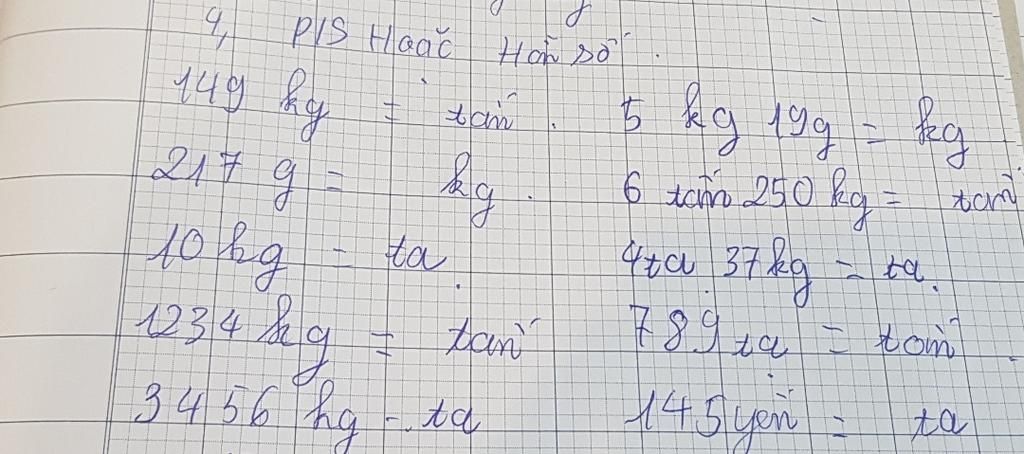 4, P/S Hoặc Hỗn số.
149 kg = tấn. 5 kg 19g = kg
217 g = kg. 6 tấn 250 kg = tấn
10 kg = tạ 4 tạ 37 kg = tạ.
1234 kg = tấn 789 tạ = tấn.
3456 kg = tạ 145 yến = tạ